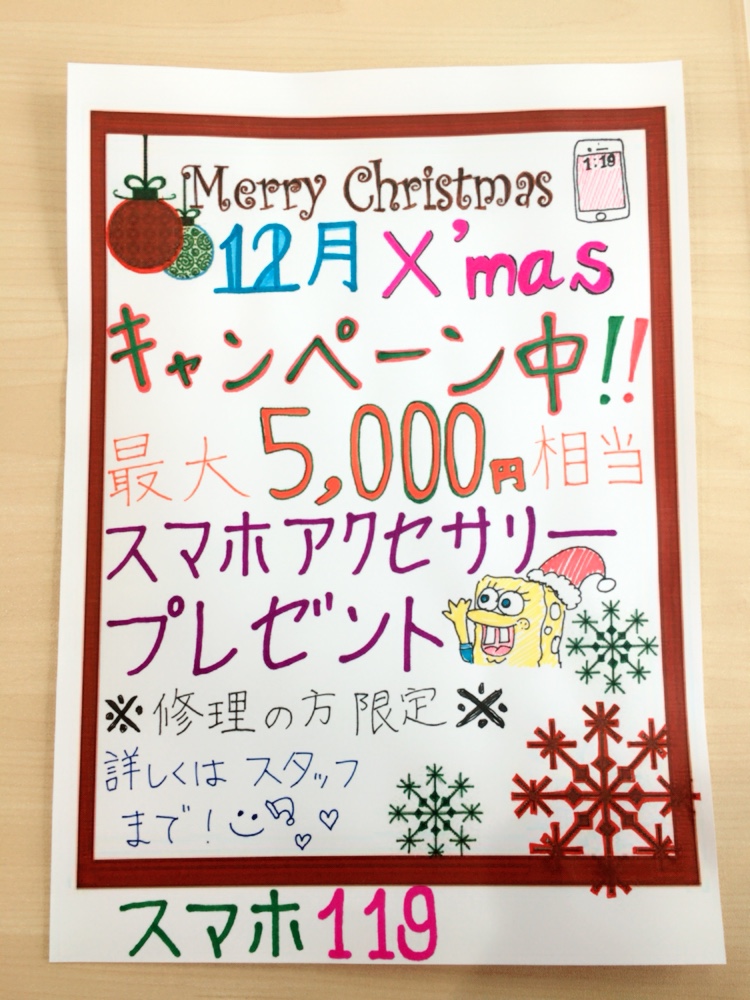 Merry Christmas
1:19
12月 X'mas
キャンペーン中!!
最大 5,000円相当
スマホアクセサリー
プレゼント
※修理の方限定※
詳しくは スタッフ
まで!
スマホ119